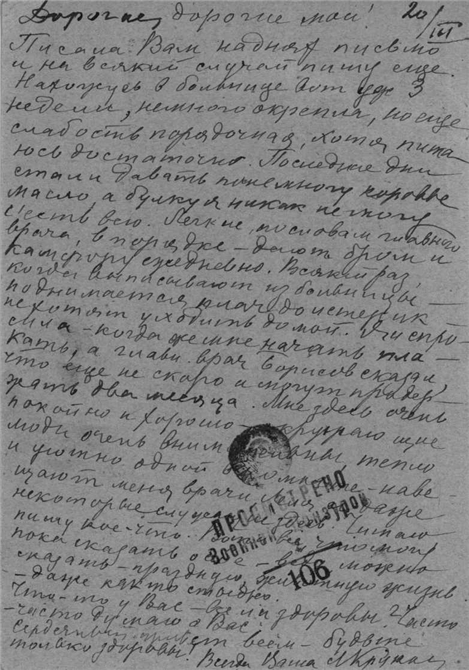 Дорогие, дорогие мои! 20/III
Писала Вам на днях письмо
и на всякий случай пишу еще.
Нахожусь в больнице вот уже 3
недели, немного окрепла, но еще
слабость порядочная, хотя пита-
юсь достаточно. Последние дни
стали давать понемногу коровье
масло, а булку я никак не могу
съесть всю. Легкие, по словам главного
врача, в порядке – делают бром и
камфору ежедневно. Всякий раз,
когда выписывают из больницы –
поднимается плач до истерик –
не хотят уходить домой. Я и спро-
сила – когда же мне начать пла-
кать, а главн. врач Борисов сказал,
что еще не скоро а могут продер-
жать два месяца. Мне здесь очень
покойно и хорошо – окружающие
люди очень внимательны тепло
и уютно одной – наве-
щают меня врачи и даже
некоторые Читаю
пишу кое-что. Вот все что могу
пока сказать о себе – можно
сказать – праздную жизнь
– даже как то стыдно.
Что-то у Вас – все ли здоровы? Часто
– часто думаю о Вас.
Сердечный привет всем – будьте
только здоровы! Всегда Ваша
ПРОСМОТРЕНО
Военной Цензурой
106